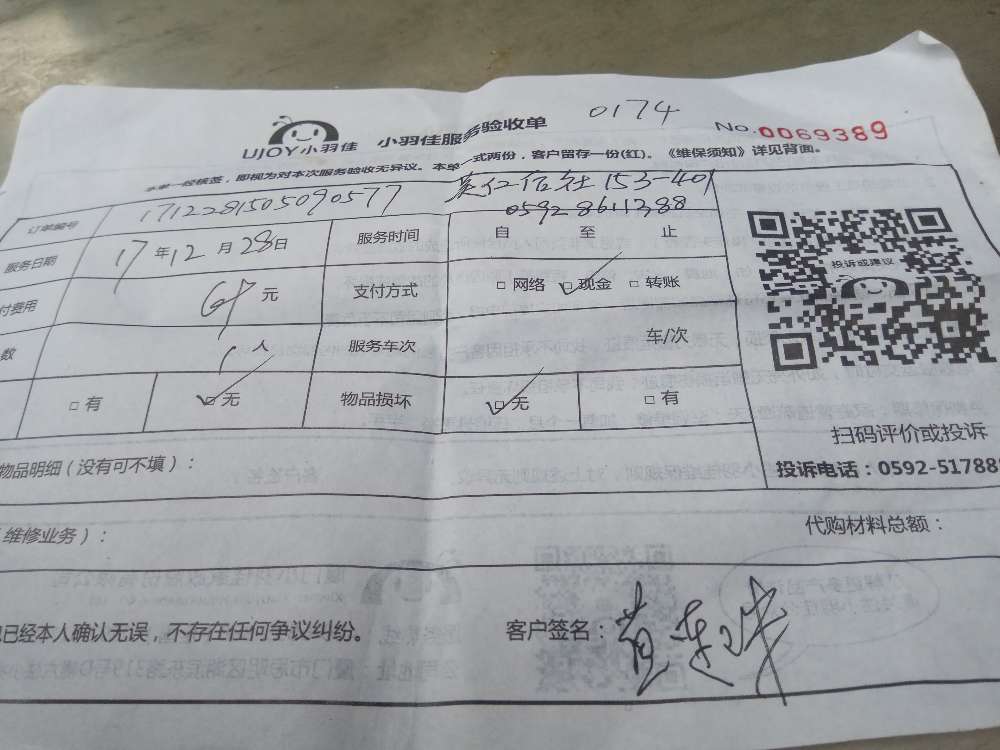 UJOY小羽佳 小羽佳服务验收单 0174 No.0069389
本单一经核签，即视为对本次服务验收无异议。本单一式两份，客户留存一份(红)。《维保须知》详见背面。
订单编号 1712281505090577 153-401
05928611388
服务日期 17年12月28日 服务时间 自 至 止
付费用 元 支付方式 □网络 ☑现金 □转账
数 1人 服务车次 车/次
□有 ☑无 物品损坏 ☑无 □有
投诉或建议
扫码评价或投诉
投诉电话：0592-517888
物品明细（没有可不填）：
维修业务）： 代购材料总额：
已经本人确认无误，不存在任何争议纠纷。 客户签名：